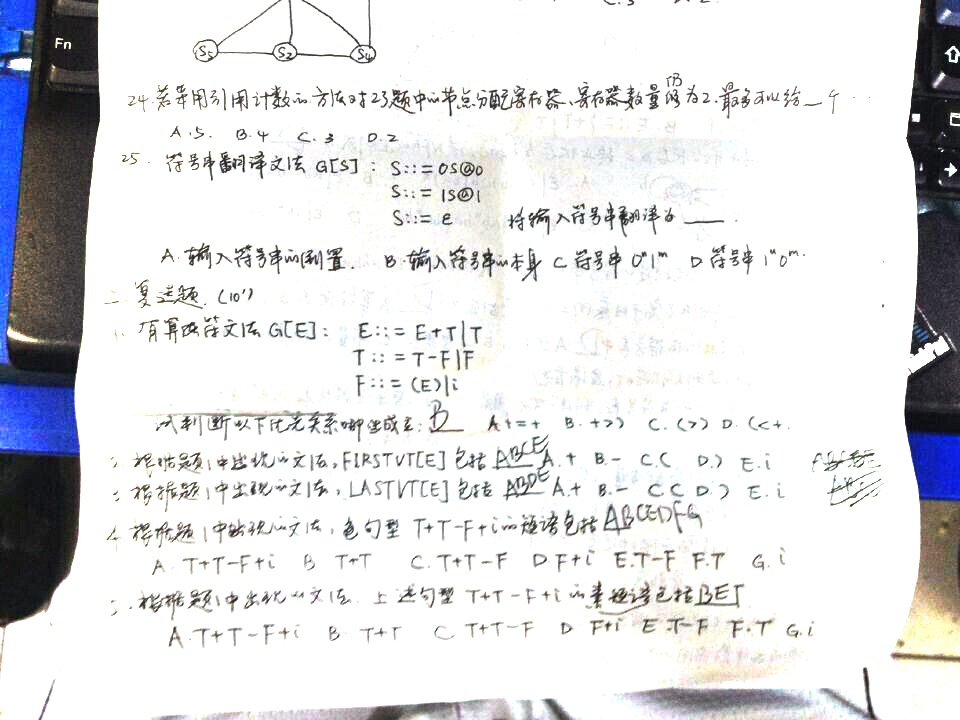 Fn
C.3 D.2
S5 S2 S4
24.若采用引用计数的方法对23题中的节点分配寄存器、寄存器数量仍为2,最多可以给__个…
A.5. B.4 C.3 D.2
25. 符号串翻译文法G[S]: S::=0S@0
S::=1S@1
S::=e 将输入符号串翻译为____.
A.输入符号串的倒置. B.输入符号串的本身 C 符号串0ⁿ1ᵐ D 符号串1ⁿ0ᵐ.
二.复选题.(10')
1.有算法文法G[E]: E::=E+T|T
T::=T-F|F
F::=(E)|i
试判断以下优先关系哪些成立:B A += + B. +>) C. (>) D. (<+.
2.根据题1中出现的文法,FIRSTVT[E]包括ABCE A.+ B.- C.( D.) E.i
3.根据题1中出现的文法,LASTVT[E]包括ABDE A.+ B.- C.( D.) E.i
4.根据题1中出现的文法,句型T+T-F+i的短语包括ABCEDFG
A.T+T-F+i B T+T C.T+T-F D.F+i E.T-F F.T G.i
5.根据题1中出现的文法.上述句型T+T-F+i的素短语包括BEI
A.T+T-F+i B T+T C T+T-F D F+i E.T-F F.T G.i